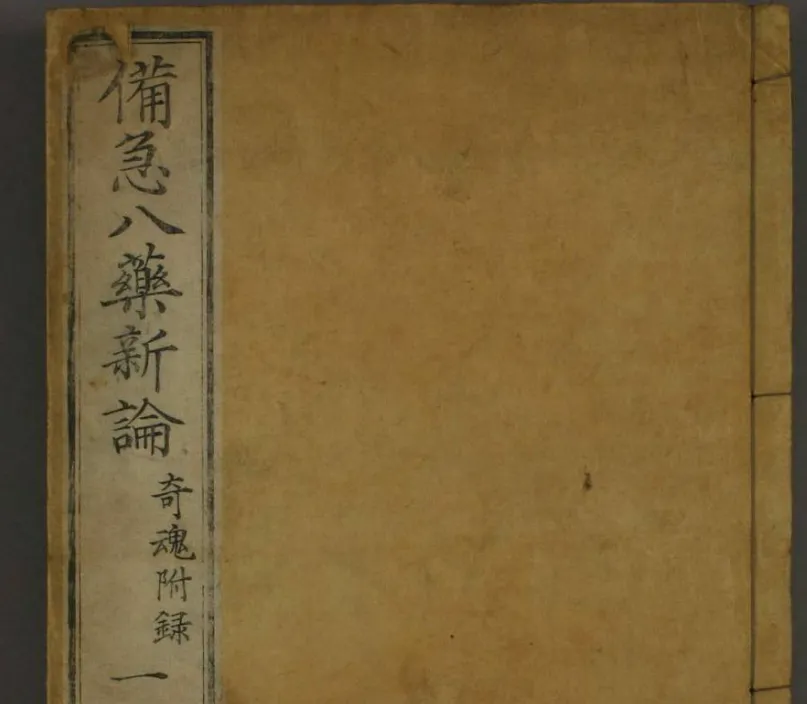 備急八藥新論
奇魂附録
一